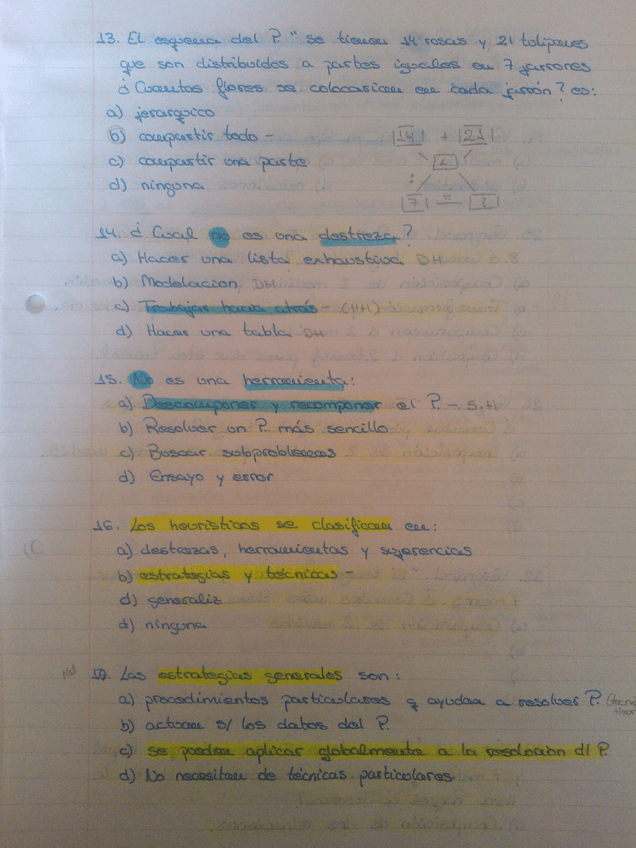 13. El esquema del P. "se tienen 14 rosas y 21 tulipanes
que son distribuidos a partes iguales en 7 jarrones
¿Cuantas flores se colocarian en cada jarrón? es:
a) jerarquico
b) compartir todo - |14| + |21|
c) compartir una parte
d) ninguna : |7| = |?|
14. ¿Cual no es una destreza?
a) Hacer una lista exhaustiva DH
b) Modelacion DH
c) Trabajar hacia atrás - (HH)
d) Hacer una tabla DH
15. No es una herramienta:
a) Descomponer y recomponer el P. - S.H
b) Resolver un P. más sencillo
c) Buscar subproblemas
d) Ensayo y error
16. Los heurísticos se clasifican en:
a) destrezas, herramientas y sugerencias
b) estrategias y técnicas -
d) generaliz
d) ninguna
Mal 17. Las estrategias generales son:
a) procedimientos particulares q ayudan a resolver P.
b) actuan s/ los datos del P.
c) se pueden aplicar globalmente a la resolución dl P.
d) No necesitan de técnicas particulares